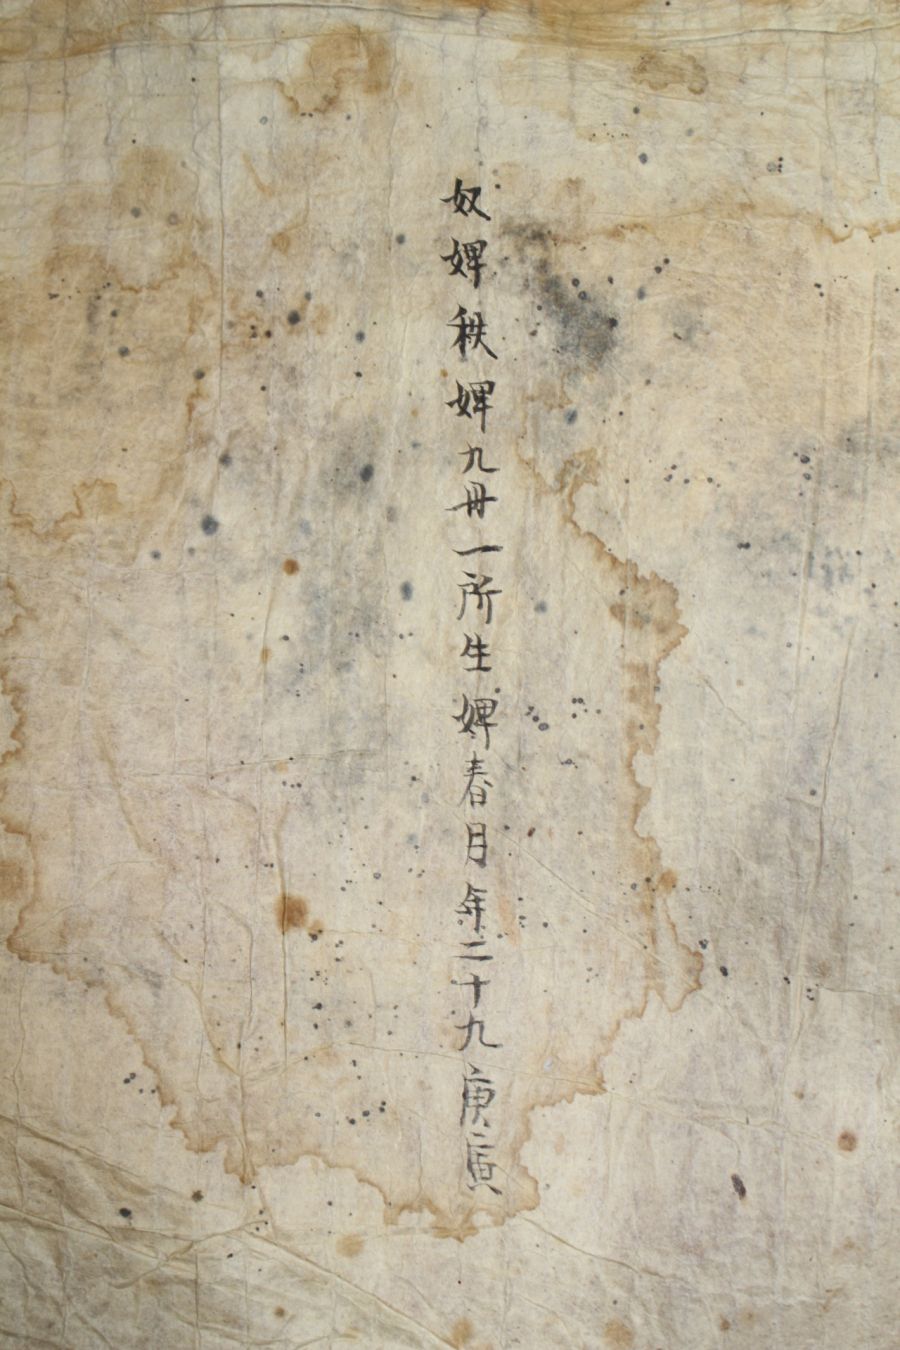 奴婢秩婢九冊一所生婢春月年二十九庚寅